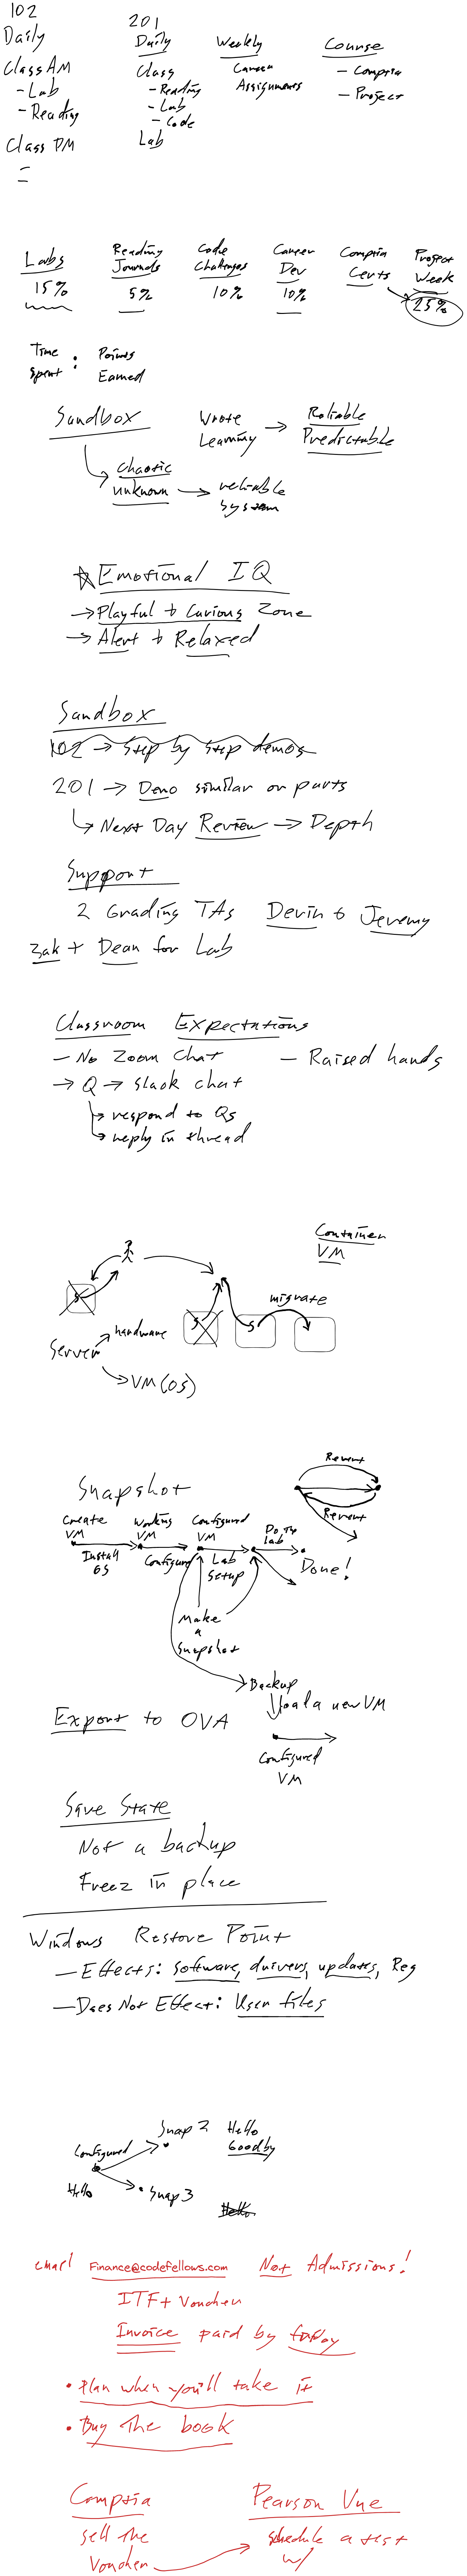 102
Daily
Class AM
- Lab
- Reading
Class PM
201
Daily
Class
- Reading
- Lab
- Code
Lab
Weekly
Career
Assignments
Course
- Comptia
- Project
Labs
15%
Reading
Journals
5%
Code
Challenges
10%
Career
Dev
10%
Comptia
Certs
Project
Week
25%
Time
spent
:
Points
Earned
Sandbox
Wrote
Learning
Reliable
Predictable
chaotic
unknown
reliable
system
Emotional IQ
Playful + Curious Zone
Alert + Relaxed
Sandbox
102 → Step by Step demos
201 → Demo similar or parts
Next Day Review → Depth
Support
2 Grading TAs Devin & Jeremy
Zak + Dean for Lab
Classroom Expectations
- No Zoom Chat
- Raised hands
→ Q → slack chat
respond to Qs
reply in thread
Container
VM
S
S
S
migrate
Server
hardware
VM (OS)
Snapshot
Revert
Revert
Create
VM
Working
VM
Configured
VM
Do The
lab
Install
OS
Configure
Lab
Setup
Done!
Make
a
snapshot
Backup
a new VM
Export to OVA
Configured
VM
Save State
Not a backup
Freez in place
Windows Restore Point
- Effects: Software, drivers, updates, Reg
- Does Not Effect: User files
Snap 2
Hello
Goodby
Configured
Hello
Snap 3
Hello
email Finance@codefellows.com Not Admissions!
ITF+ Voucher
Invoice paid by today
• Plan when you'll take it
• Buy The book
Comptia
sell the
Voucher
Pearson Vue
schedule a test
w/